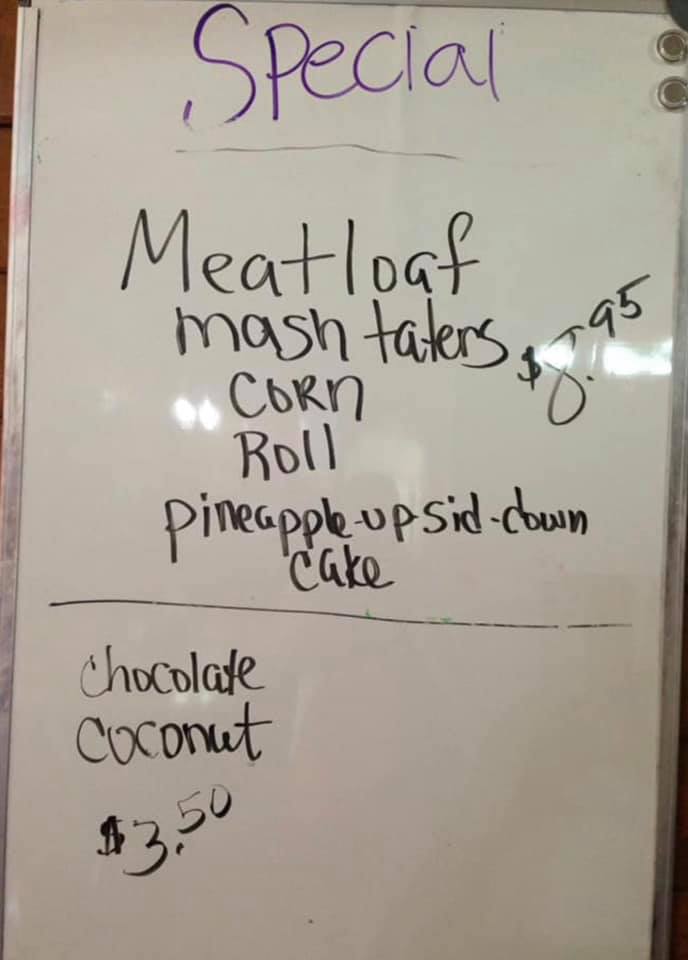 Special
Meatloaf
mash taters $8.95
CORN
Roll
pineapple-upsid-down
cake
chocolate
coconut
$3.50